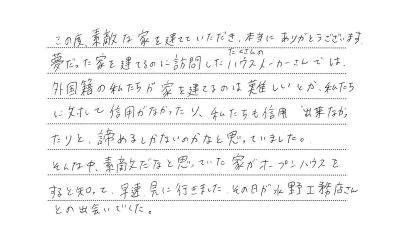 この度、素敵な家を建てていただき、本当にありがとうございます。
夢だった家を建てるのに訪問したたくさんのハウスメーカーさんでは、
外国籍の私たちが家を建てるのは難しいとか、私たち
に対して信用がなかったり、私たちも信用出来なか
たりと、諦めるしかないのかなと思っていました。
そんな中、素敵だなと思っていた家がオープンハウスを
すると知って、早速見に行きました。その日が水野工務店さん
との出会いでした。